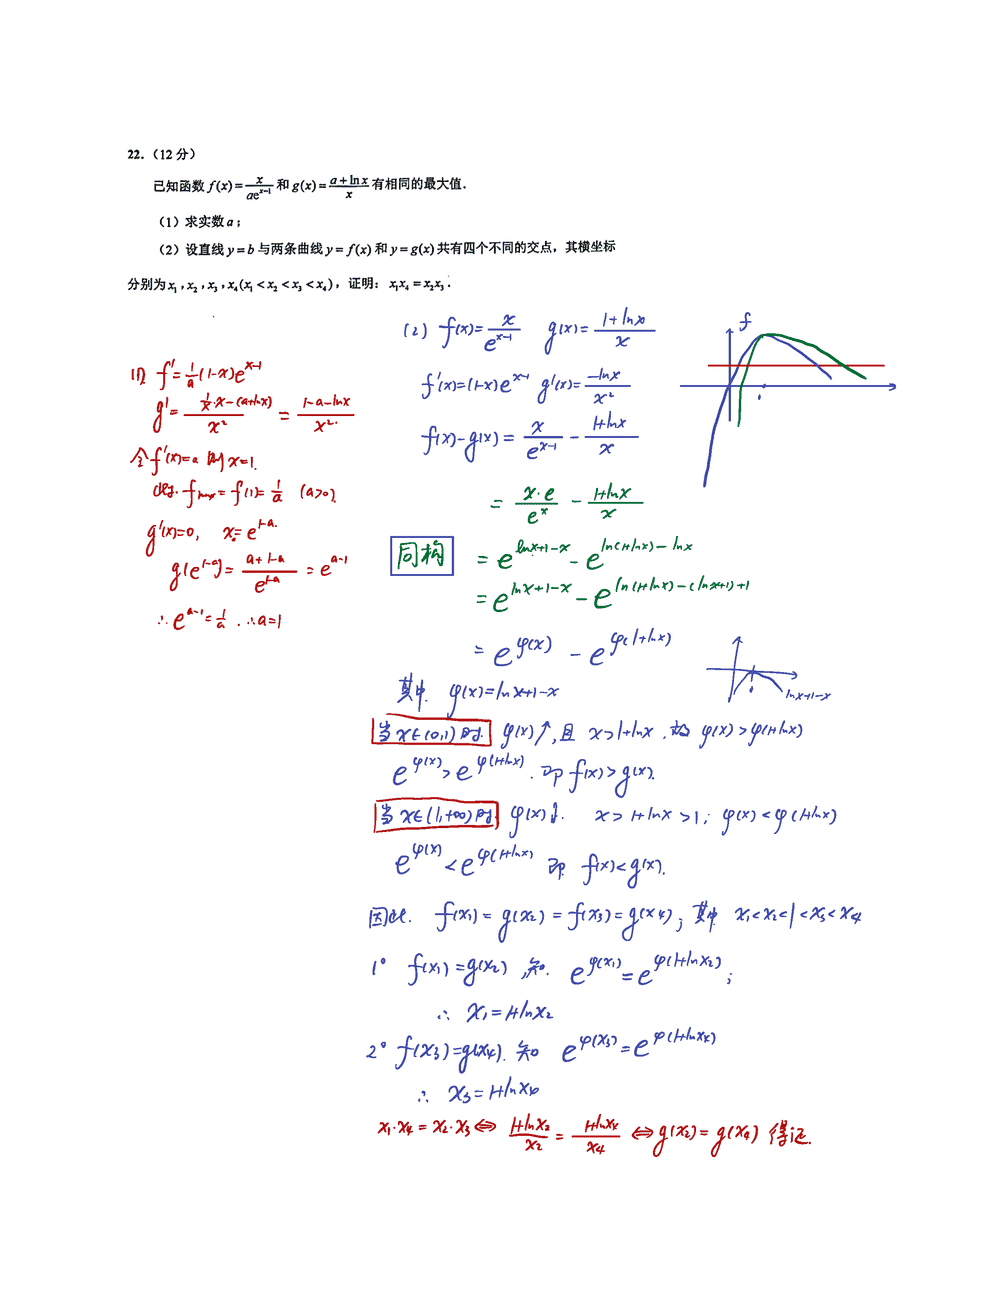 22.（12 分）
已知函数 f(x)=x/(ae^(x-1)) 和 g(x)=(a+ln x)/x 有相同的最大值.
（1）求实数 a；
（2）设直线 y=b 与两条曲线 y=f(x) 和 y=g(x) 共有四个不同的交点，其横坐标
分别为 x₁,x₂,x₃,x₄(x₁<x₂<x₃<x₄)，证明：x₁x₄=x₂x₃.
(1) f'=1/a(1-x)e^(x-1)
g'=(1/x·x-(a+lnx))/x² = (1-a-lnx)/x²
令f'(x)=a 则x=1.
此时. f_max=f(1)=1/a (a>0).
g'(x)=0, x=e^(1-a).
g(e^(1-a))=(a+1-a)/e^(1-a) = e^(a-1)
∴e^(a-1)=1/a. ∴a=1
(2) f(x)=x/e^(x-1) g(x)=(1+lnx)/x
f'(x)=(1-x)e^(x-1) g'(x)=-lnx/x²
f(x)-g(x)=x/e^(x-1) - (1+lnx)/x
= x·e/e^x - (1+lnx)/x
同构 = e^(lnx+1-x) - e^(ln(1+lnx)-lnx)
= e^(lnx+1-x) - e^(ln(1+lnx)-(lnx+1)+1)
= e^φ(x) - e^φ(1+lnx)
其中. φ(x)=lnx+1-x
当x∈(0,1)时. φ(x)↑,且 x>1+lnx. 故 φ(x)>φ(1+lnx)
e^φ(x)>e^φ(1+lnx). 即 f(x)>g(x).
当x∈(1,+∞)时. φ(x)↓. x>1+lnx>1; φ(x)<φ(1+lnx)
e^φ(x)<e^φ(1+lnx) 即 f(x)<g(x).
因此. f(x₁)=g(x₂)=f(x₃)=g(x₄); 其中 x₁<x₂<1<x₃<x₄
1° f(x₁)=g(x₂), 知. e^φ(x₁)=e^φ(1+lnx₂);
∴ x₁=1+lnx₂
2° f(x₃)=g(x₄). 知 e^φ(x₃)=e^φ(1+lnx₄)
∴ x₃=1+lnx₄
x₁·x₄=x₂·x₃⇔(1+lnx₂)/x₂=(1+lnx₄)/x₄⇔g(x₂)=g(x₄) 得证.
f
1
lnx+1-x
1